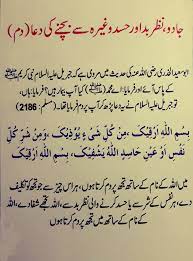 جادو، نظر بد اور حسد وغیرہ سے بچنے کی دعا (دم)
ابو سعید الخدری رضی اللہ عنہ کی حدیث میں مروی ہے کہ جبریل علیہ السلام نبی کریم ﷺ
کے پاس آئے اور فرمایا: اے محمد! کیا آپ بیمار ہیں؟ آپ نے فرمایا: ہاں،
تو جبریل علیہ السلام نے یہ دعا پڑھ کر آپ پر دم فرمایا۔ (مسلم: 2186)
بِسْمِ اللَّهِ أَرْقِيكَ، مِنْ كُلِّ شَيْءٍ يُؤْذِيكَ، وَمِنْ شَرِّ كُلِّ
نَفْسٍ أَوْ عَيْنِ حَاسِدٍ اللَّهُ يَشْفِيكَ، بِسْمِ اللَّهِ أَرْقِيكَ
میں اللہ کے نام کے ساتھ تجھ پر دم کرتا ہوں، ہر اس چیز سے جو تجھے تکلیف
دے، ہر نفس کے شر سے یا حسد کرنے والی نظر بد سے، اللہ تجھے شفا دے، اللہ
کے نام کے ساتھ میں تجھ پر دم کرتا ہوں